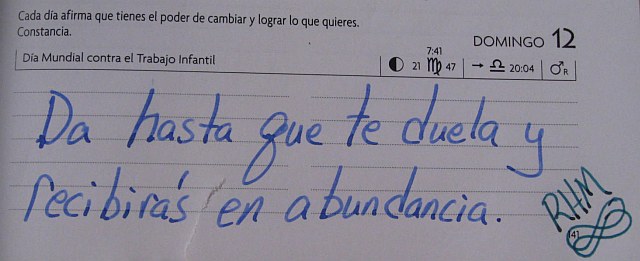 Cada día afirma que tienes el poder de cambiar y lograr lo que quieres.
Constancia.
DOMINGO 12
Día Mundial contra el Trabajo Infantil
7:41
◐ 21 ♍ 47 → ♎ 20:04 ♂R
Da hasta que te duela y
recibirás en abundancia.
RHM
141